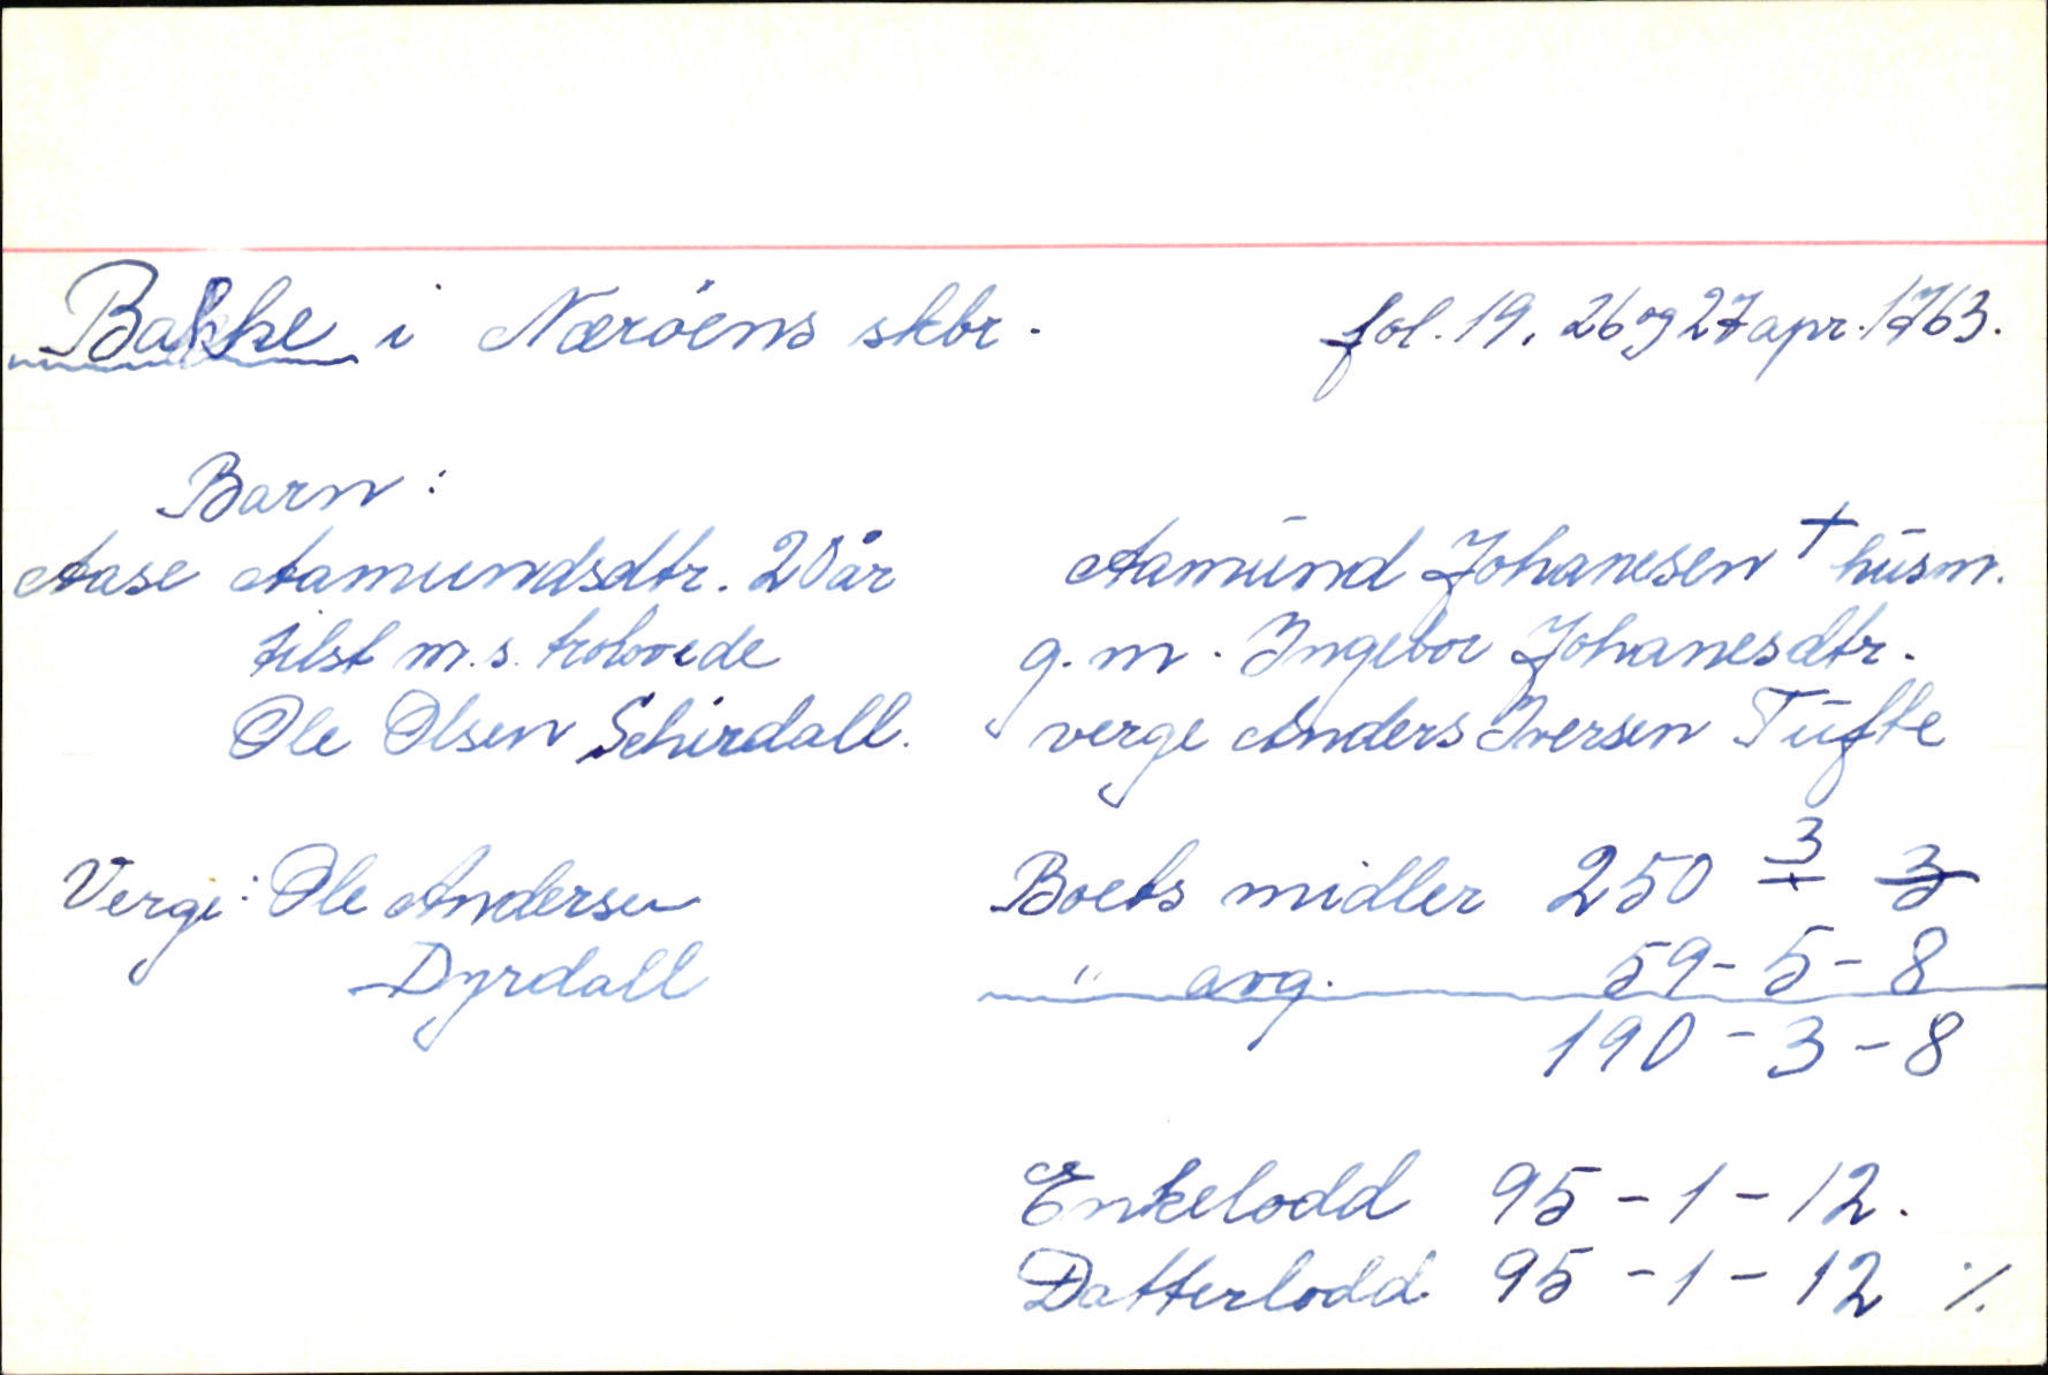 Bakke i Nærøens skbr. fol. 19, 26 og 27 apr. 1763.
Barn:
Aase Aamundsdtr. 20 år
tilst m. s. trolovede
Ole Olsen Schirdall.
Verge: Ole Andersen
Dyrdall
Aamund Johanesen + husm.
g. m. Ingebor Johanesdtr.
verge Anders Iversen Tufte
Boets midler 250 3 3
" avg. 59-5-8
190-3-8
Enkelodd 95-1-12.
Datterlodd 95-1-12 ·/.